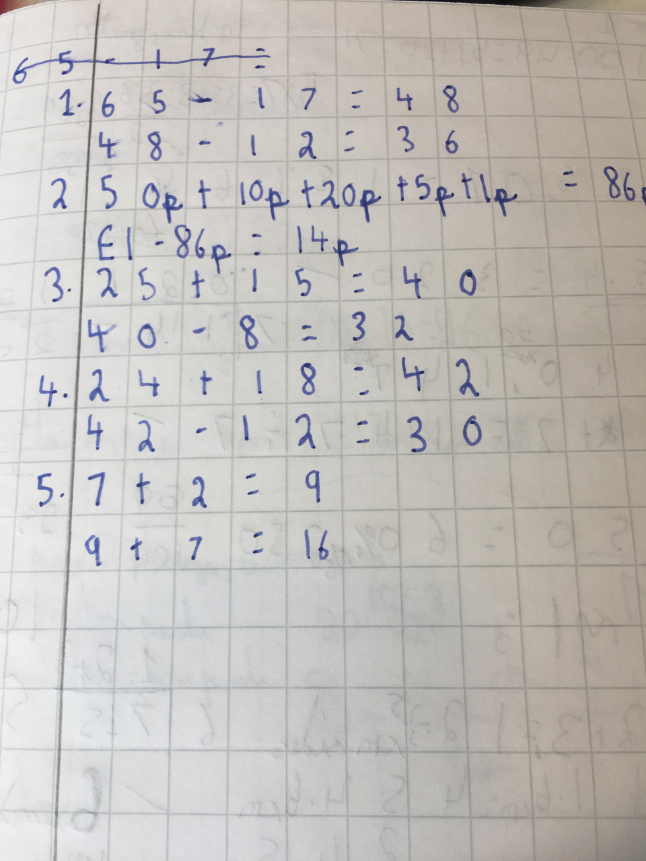 6 5 - 1 7 =
1. 6 5 - 1 7 = 4 8
4 8 - 1 2 = 3 6
2 50p + 10p + 20p + 5p + 1p = 86p
£1 - 86p = 14p
3. 2 5 + 1 5 = 4 0
4 0 - 8 = 3 2
4. 2 4 + 1 8 = 4 2
4 2 - 1 2 = 3 0
5. 7 + 2 = 9
9 + 7 = 16